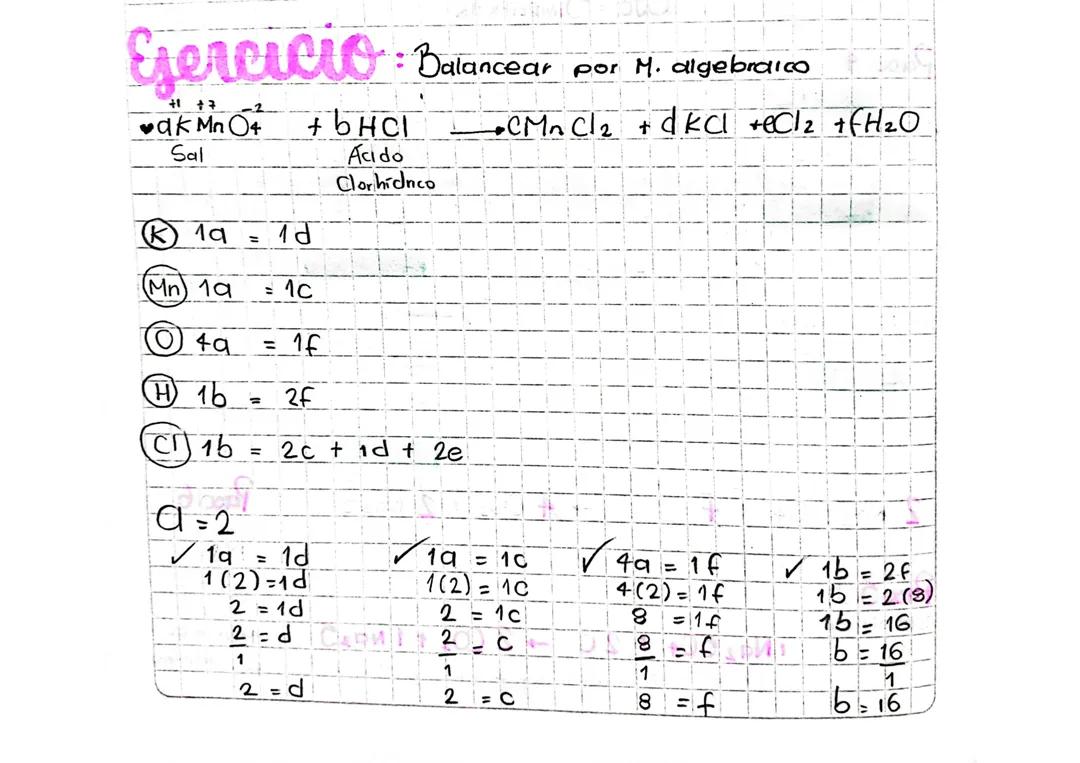 Ejercicio: Balancear por M. algebraico
+1 +7 -2
aKMnO4 + bHCl → CMnCl2 + dKCl + eCl2 + fH2O
Sal Ácido
Clorhídrico
K 1a = 1d
Mn 1a = 1c
O 4a = 1f
H 1b = 2f
Cl 1b = 2c + 1d + 2e
a = 2
✓ 1a = 1d ✓ 1a = 1c ✓ 4a = 1f ✓ 1b = 2f
1(2) = 1d 1(2) = 1c 4(2) = 1f 1b = 2(8)
2 = 1d 2 = 1c 8 = 1f 1b = 16
2/1 = d 2/1 = c 8/1 = f b = 16/1
2 = d 2 = c 8 = f b = 16